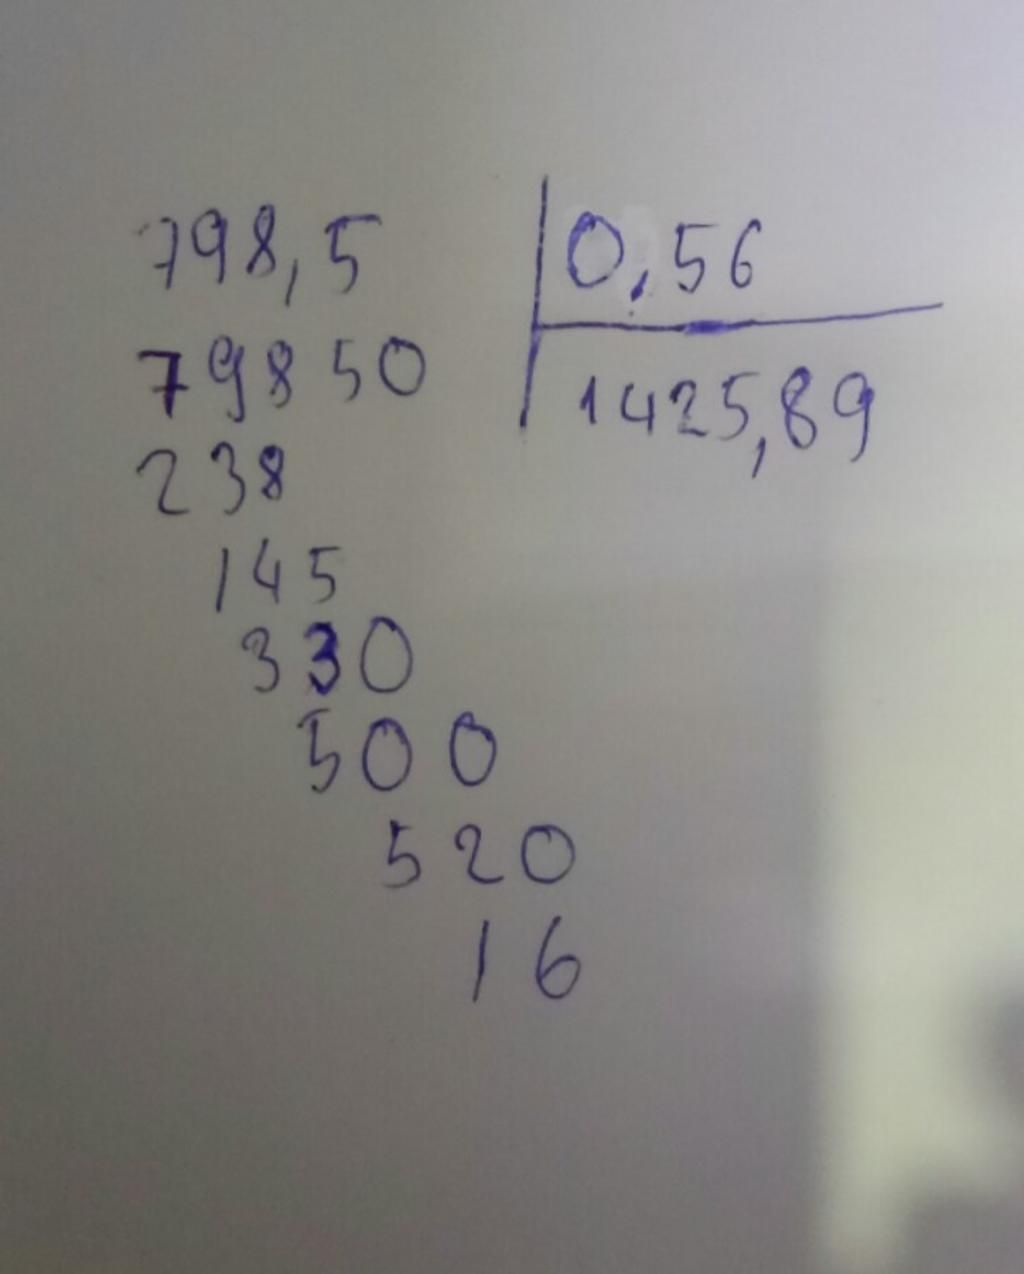 798,5 0,56
79850 1425,89
238
145
330
500
520
16